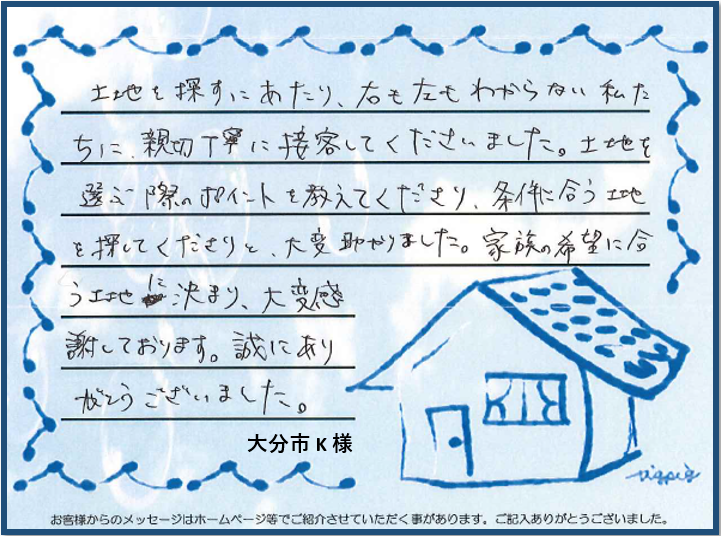 土地を探すにあたり、右も左もわからない私た
ちに、親切丁寧に接客してくださいました。土地を
選ぶ際のポイントを教えてくださり、条件に合う土地
を探してくださりと、大変助かりました。家族の希望に合
う土地に決まり、大変感
謝しております。誠にあり
がとうございました。
大分市 K 様
お客様からのメッセージはホームページ等でご紹介させていただく事があります。ご記入ありがとうございました。